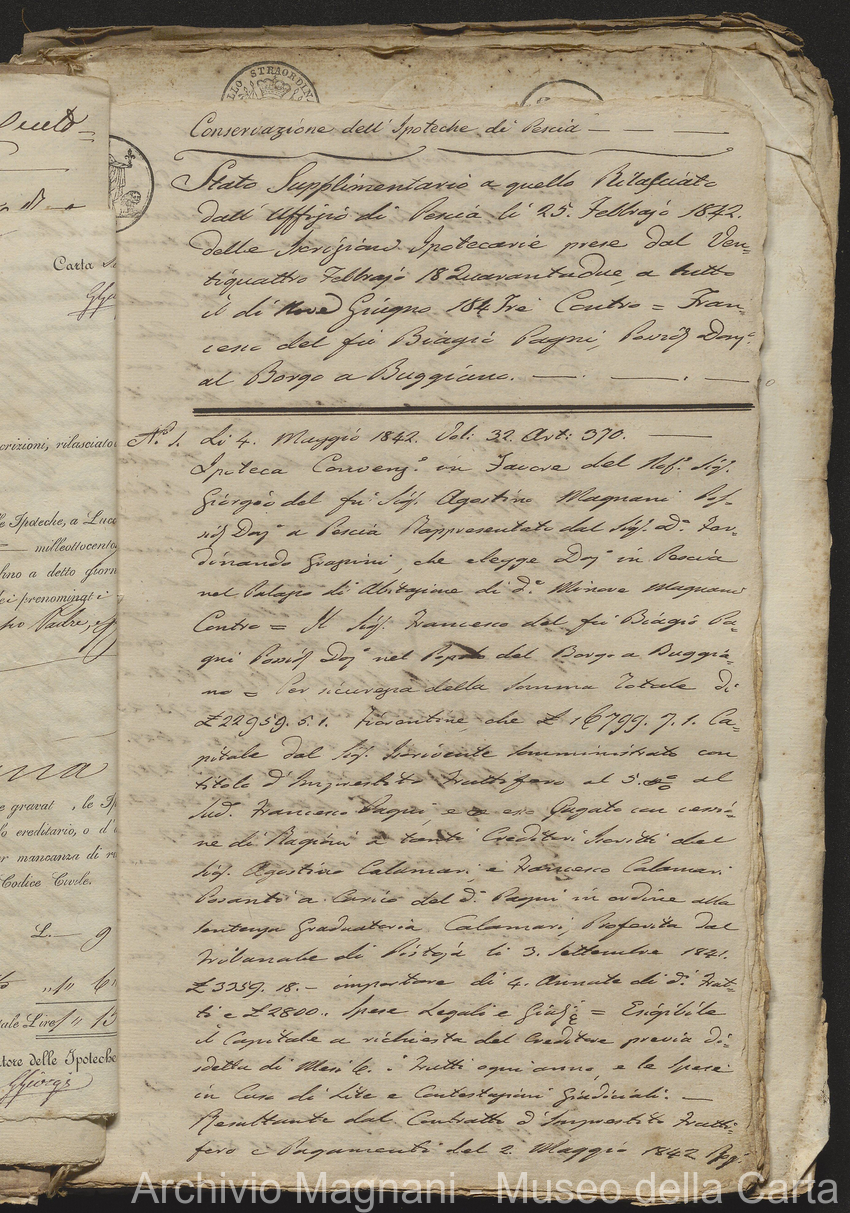 LLO STRAORDIN
Conservazione dell' Ipoteche di Pescia
Stato Supplimentario a quello Rilasciato
dall' Uffizio di Pescia li 25. Febbrajo 1842.
delle Iscrizioni Ipotecarie prese dal Ven=
tiquattro Febbrajo 18Quarantadue, a tutto
il di Nove Giugno 184Tre Contro = Fran=
cesco del fu Biagio Pagni, Possid. Dom.
al Borgo a Buggiano.
N.º 1. Li 4. Maggio 1842. Vol: 32. Art: 370.
Ipoteca Convenz. in Favore del Nob. Sig.
Giorgio del fu Sig. Agostino Magnani Pos=
sid. Dom. a Pescia Rappresentato dal Sig. D. Fer=
dinando Grassini, che elegge Dom. in Pescia
nel Palazzo di Abitazione di d. Magnani
Contro = Il Sig. Francesco del fu Biagio Pa=
gni Possid. Dom. nel Popolo del Borgo a Buggia=
no = Per sicurezza della Somma Totale di
£ 22959. 5. 1. Fiorentine, che £ 16799. 7. 1. Ca=
pitale dal Sig. Iscrivente somministrato con
titolo d'Imprestito Fruttifero al 5. al
Sud. Francesco Pagni, e Pagato con cessio=
ne di Ragioni a tanti Creditori Iscritti del
Sig. Agostino Calamari, e Francesco Calamari
Posanti a Carico del d. Pagni in ordine alla
Sentenza Graduatoria Calamari, Proferita dal
Tribunale di Pistoja li 3. Settembre 1841.
£ 3359. 18. – importare di 4. Annate di d. Frut=
ti e £ 2800.. Spese Legali e = Esigibile
il Capitale a richiesta del Creditore previa Di=
sdetta di Mesi 6. i Frutti ogni anno, e le Spese
in Caso di Lite e Contestazioni Giudiciali. —
Resultante dal Contratto d'Imprestito Frutti=
fero e Pagamenti del 2. Maggio 1842
Carta
crizioni, rilasciato
e Ipoteche, a Lucc
milleottocento
fino a detto giorn
dei prenominati
Padre,
na
e gravat , le Ip
lo ereditario, o d'
er mancanza di
Codice Civile.
L.— 9
tale Lire 13
tore delle Ipoteche
Archivio Magnani - Museo della Carta